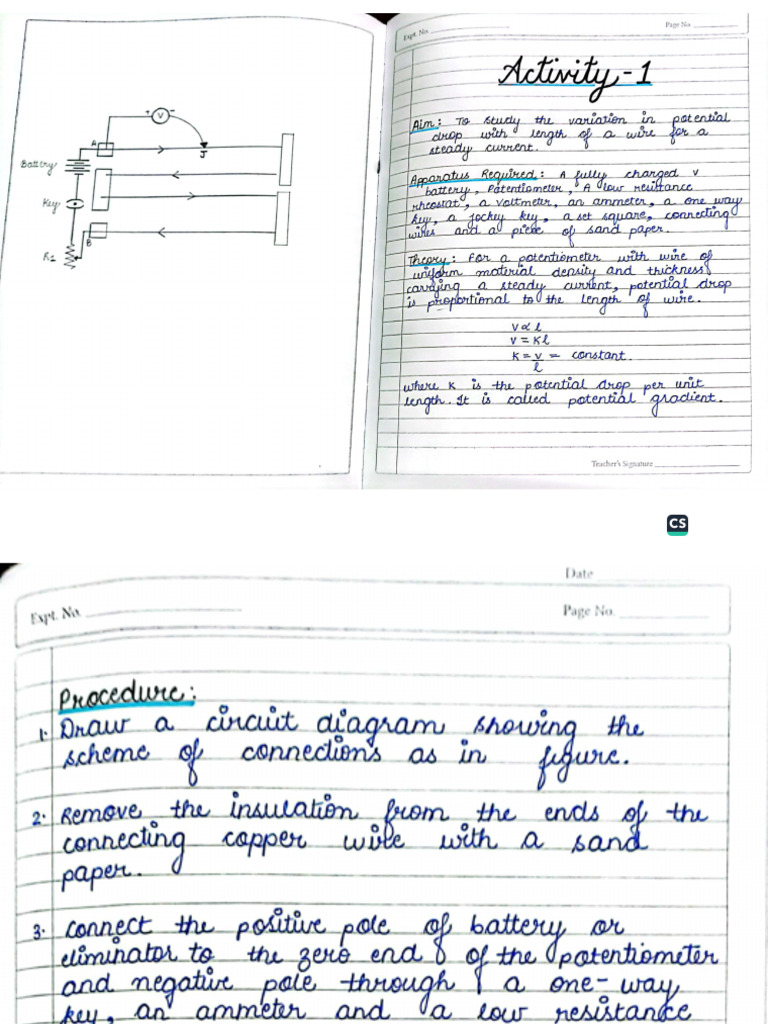 + V -
A
J
Battery
Key
B
R1
Expt. No.
Page No.
Activity-1
Aim: To study the variation in potential
drop with length of a wire for a
steady current.
Apparatus Required: A fully charged v
battery, Potentiometer, A low resistance
rheostat, a voltmeter, an ammeter, a one way
key, a jockey key, a set square, connecting
wires and a piece of sand paper.
Theory: For a potentiometer with wire of
uniform material density and thickness
carrying a steady current, potential drop
is proportional to the length of wire.
V ∝ l
V = Kl
K = V/l = constant.
where K is the potential drop per unit
length. It is called potential gradient.
Teacher's Signature
CS
Date
Expt. No.
Page No.
Procedure:
1. Draw a circuit diagram showing the
scheme of connections as in figure.
2. Remove the insulation from the ends of the
connecting copper wire with a sand
paper.
3. Connect the positive pole of battery or
eliminator to the zero end of the potentiometer
and negative pole through a one-way
key, an ammeter and a low resistance